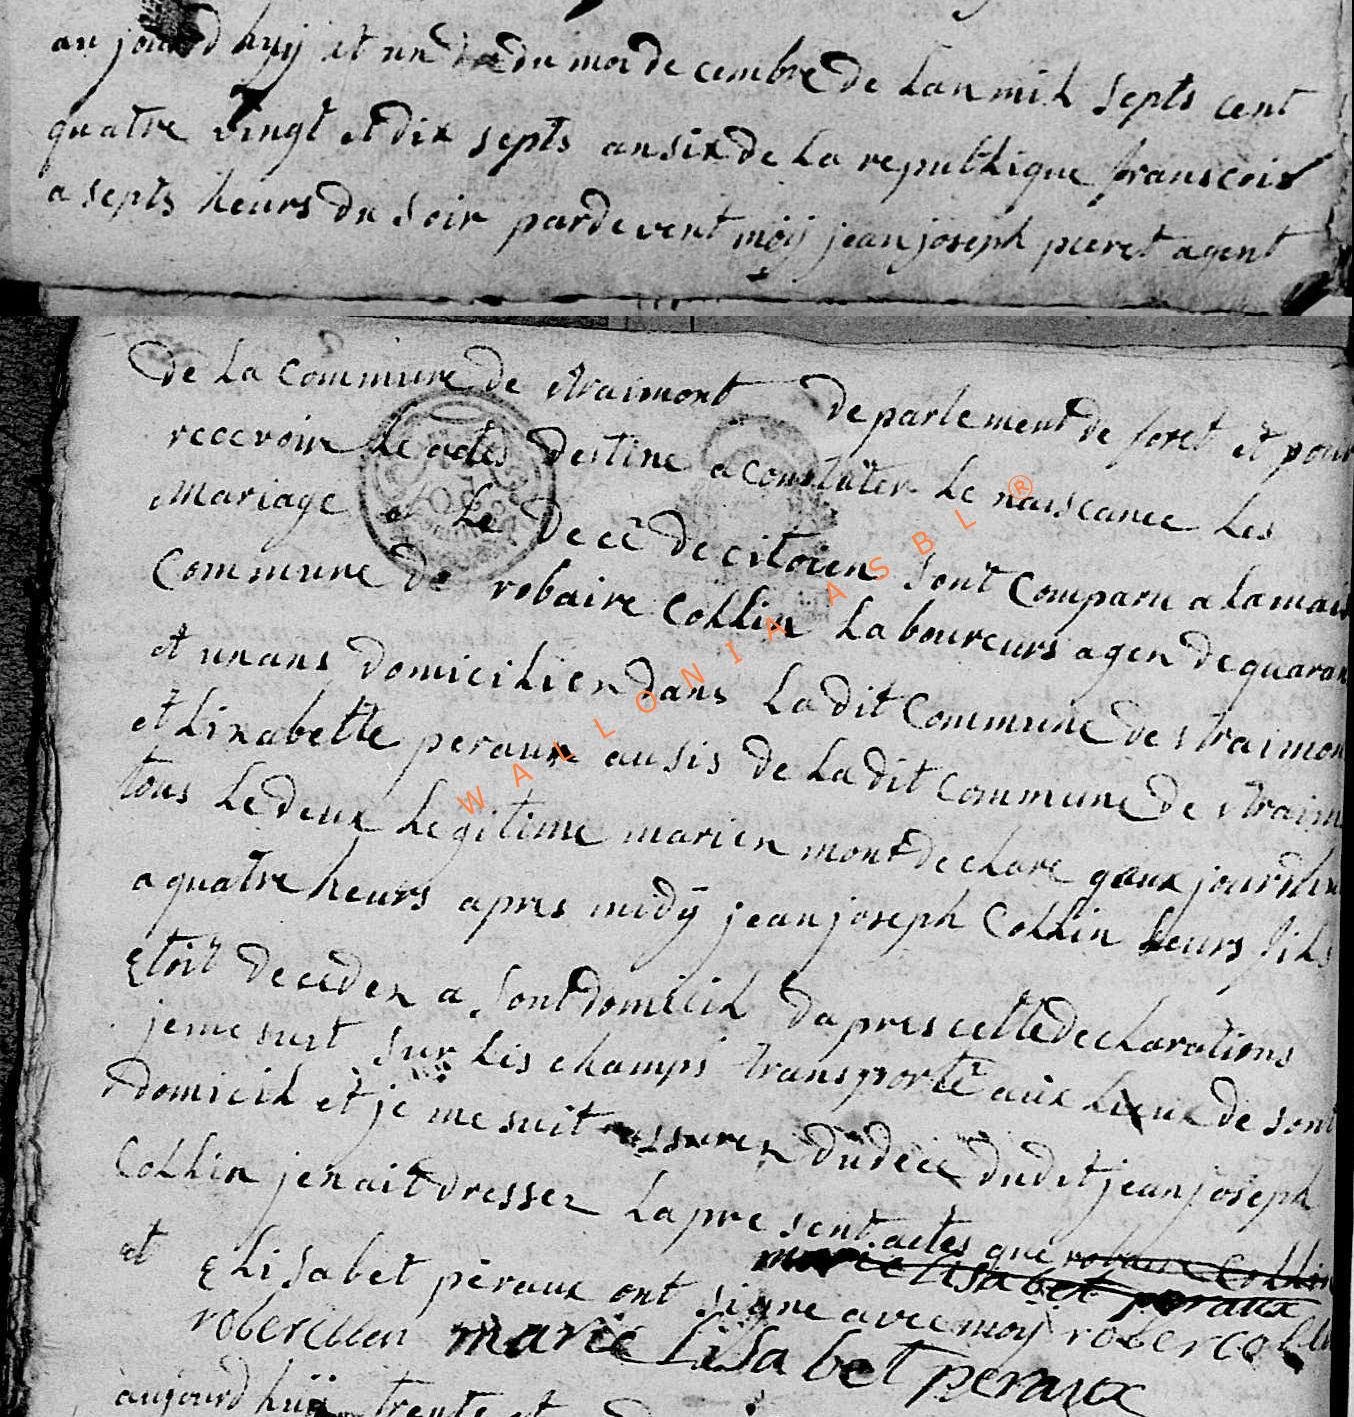 au jourd huÿ et un du mois de cembre de Lan mil septs cent
quatre vingt et dix septs an six de la republique franscois
a septs heurs du soir pardevent moÿ jean joseph pieret agent
de La Commune de straimont departement de foret et pour
recevoir Le actes destine a constater Le naiscance Les
mariage et Le decé de citoien sont comparu a lamais
Commune de robaire Collin Laboureurs agen de quaran
et unans domicilien dans Ladit Commune de straimon
et Lixabette peraux ausis de Ladit Commune de straim
tous Le deux Legitime marien mont declare quaux jourdhu
a quatre heurs apres midÿ jean joseph Collin Leurs fils
Etoit decedez a sont domicil dapres cette declarations
jeme suit sur Lis champs transporté aux Lieux de sont
domicil et je me suit assurez du decé dudit jean joseph
Collin jenait dresser La pre sent actes que robaire Collin
marie lisabet peraux
et Elisabet peraux ont signe avec moÿ rober Collin
rober Collin marie Lisabet peraux
aujourd huÿ trente et
WALLONIA ASBL ®